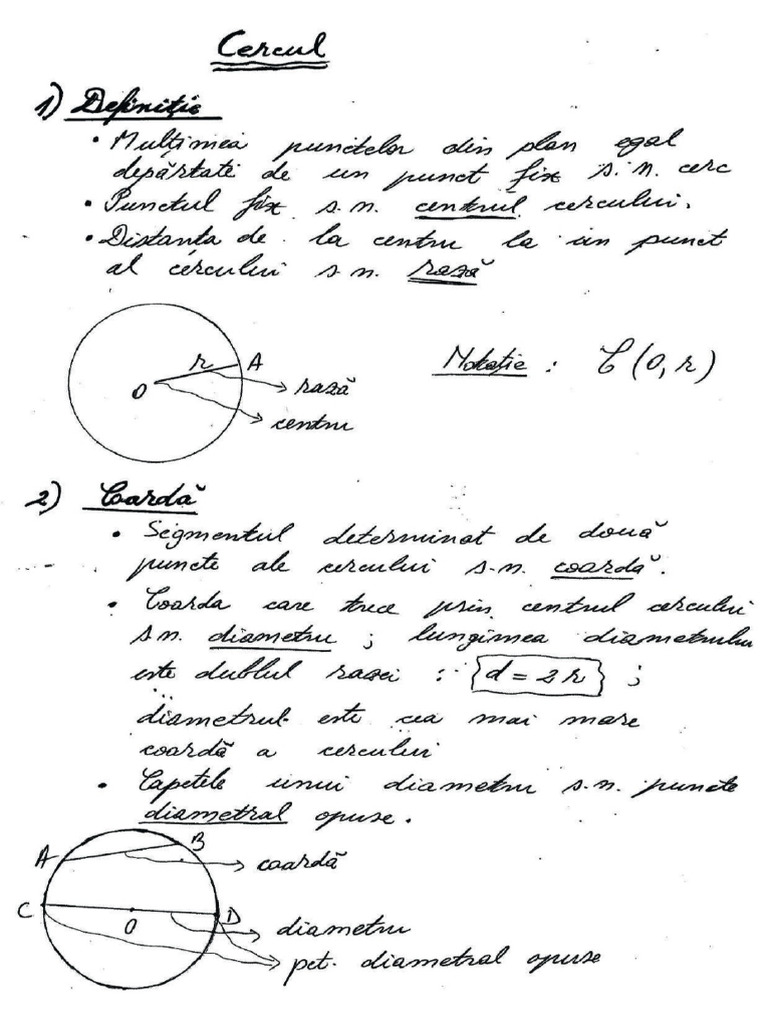 Cercul
1) Definiție
• Mulțimea punctelor din plan egal
depărtate de un punct fix s.n. cerc
• Punctul fix s.n. centrul cercului.
• Distanța de la centru la un punct
al cercului s.n. rază
r A
O
rază
centru
Notație : C(O,r)
2) Coardă
• Segmentul determinat de două
puncte ale cercului s.n. coardă.
• Coarda care trece prin centrul cercului
s.n. diametru ; lungimea diametrului
este dublul razei : d = 2r ;
diametrul este cea mai mare
coardă a cercului
• Capetele unui diametru s.n. puncte
diametral opuse.
A B
coardă
C O D
diametru
pct. diametral opuse